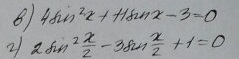 в) 4sin²x + 11sinx - 3 = 0
г) 2sin² x/2 - 3sin x/2 + 1 = 0